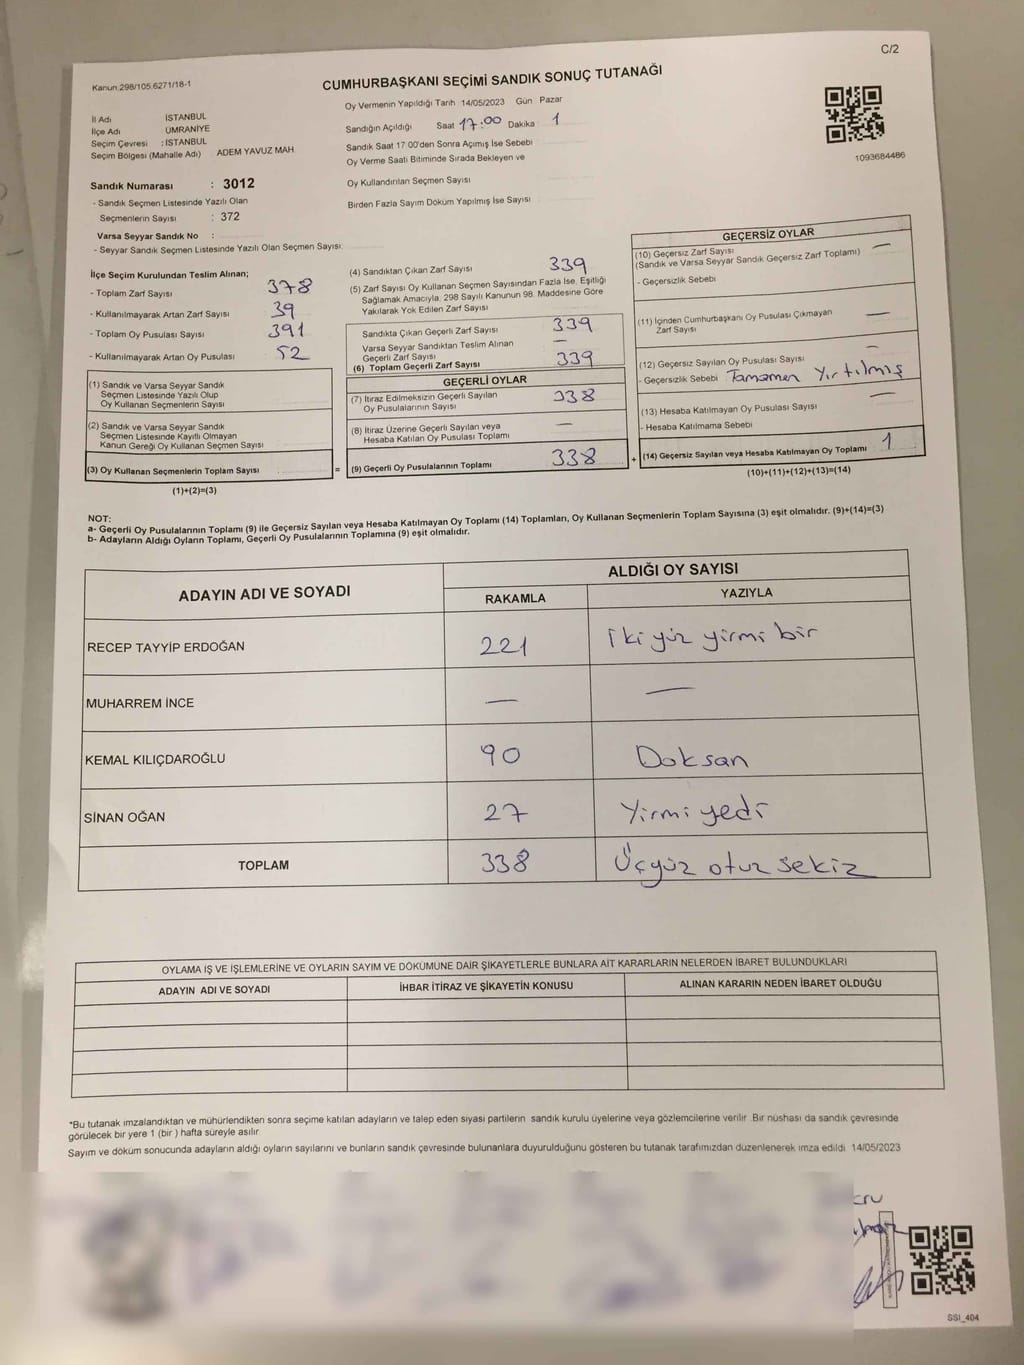 C/2
Kanun.298/105.6271/18-1
CUMHURBAŞKANI SEÇİMİ SANDIK SONUÇ TUTANAĞI
Oy Vermenin Yapıldığı Tarih 14/05/2023 Gün Pazar
İl Adı İSTANBUL
İlçe Adı ÜMRANİYE
Seçim Çevresi : İSTANBUL
Seçim Bölgesi (Mahalle Adı) ADEM YAVUZ MAH.
Sandığın Açıldığı Saat 17:00 Dakika : 1
Sandık Saat 17.00'den Sonra Açımış İse Sebebi
Oy Verme Saati Bitiminde Sırada Bekleyen ve
Oy Kullandırılan Seçmen Sayısı
Birden Fazla Sayım Döküm Yapılmış İse Sayısı
1093684486
Sandık Numarası : 3012
- Sandık Seçmen Listesinde Yazılı Olan
Seçmenlerin Sayısı : 372
Varsa Seyyar Sandık No :
- Seyyar Sandık Seçmen Listesinde Yazılı Olan Seçmen Sayısı:
İlçe Seçim Kurulundan Teslim Alınan;
- Toplam Zarf Sayısı 378
- Kullanılmayarak Artan Zarf Sayısı 39
- Toplam Oy Pusulası Sayısı 391
- Kullanılmayarak Artan Oy Pusulası 52
(1) Sandık ve Varsa Seyyar Sandık
Seçmen Listesinde Yazılı Olup
Oy Kullanan Seçmenlerin Sayısı
(2) Sandık ve Varsa Seyyar Sandık
Seçmen Listesinde Kayıtlı Olmayan
Kanun Gereği Oy Kullanan Seçmen Sayısı
(3) Oy Kullanan Seçmenlerin Toplam Sayısı =
(1)+(2)=(3)
(4) Sandıktan Çıkan Zarf Sayısı 339
(5) Zarf Sayısı Oy Kullanan Seçmen Sayısından Fazla İse, Eşitliği
Sağlamak Amacıyla, 298 Sayılı Kanunun 98. Maddesine Göre
Yakılarak Yok Edilen Zarf Sayısı
Sandıkta Çıkan Geçerli Zarf Sayısı 339
Varsa Seyyar Sandıktan Teslim Alınan
Geçerli Zarf Sayısı —
(6) Toplam Geçerli Zarf Sayısı 339
GEÇERLİ OYLAR
(7) İtiraz Edilmeksizin Geçerli Sayılan
Oy Pusulalarının Sayısı 338
(8) İtiraz Üzerine Geçerli Sayılan veya
Hesaba Katılan Oy Pusulası Toplamı —
(9) Geçerli Oy Pusulalarının Toplamı 338 +
GEÇERSİZ OYLAR
(10) Geçersiz Zarf Sayısı —
(Sandık ve Varsa Seyyar Sandık Geçersiz Zarf Toplamı)
- Geçersizlik Sebebi
(11) İçinden Cumhurbaşkanı Oy Pusulası Çıkmayan
Zarf Sayısı —
(12) Geçersiz Sayılan Oy Pusulası Sayısı —
- Geçersizlik Sebebi Tamamen Yırtılmış
(13) Hesaba Katılmayan Oy Pusulası Sayısı —
- Hesaba Katılmama Sebebi
(14) Geçersiz Sayılan veya Hesaba Katılmayan Oy Toplamı 1
(10)+(11)+(12)+(13)=(14)
NOT:
a- Geçerli Oy Pusulalarının Toplamı (9) ile Geçersiz Sayılan veya Hesaba Katılmayan Oy Toplamı (14) Toplamları, Oy Kullanan Seçmenlerin Toplam Sayısına (3) eşit olmalıdır. (9)+(14)=(3)
b- Adayların Aldığı Oyların Toplamı, Geçerli Oy Pusulalarının Toplamına (9) eşit olmalıdır.
ADAYIN ADI VE SOYADI ALDIĞI OY SAYISI
RAKAMLA YAZIYLA
RECEP TAYYİP ERDOĞAN 221 İki yüz yirmi bir
MUHARREM İNCE — —
KEMAL KILIÇDAROĞLU 90 Doksan
SİNAN OĞAN 27 Yirmi yedi
TOPLAM 338 Üçyüz otuz sekiz
OYLAMA İŞ VE İŞLEMLERİNE VE OYLARIN SAYIM VE DÖKÜMÜNE DAİR ŞİKAYETLERLE BUNLARA AİT KARARLARIN NELERDEN İBARET BULUNDUKLARI
ADAYIN ADI VE SOYADI İHBAR İTİRAZ VE ŞİKAYETİN KONUSU ALINAN KARARIN NEDEN İBARET OLDUĞU
*Bu tutanak imzalandıktan ve mühürlendikten sonra seçime katılan adayların ve talep eden siyasi partilerin sandık kurulu üyelerine veya gözlemcilerine verilir. Bir nüshası da sandık çevresinde
görülecek bir yere 1 (bir) hafta süreyle asılır.
Sayım ve döküm sonucunda adayların aldığı oyların sayılarını ve bunların sandık çevresinde bulunanlara duyurulduğunu gösteren bu tutanak tarafımızdan düzenlenerek imza edildi. 14/05/2023
SSI_404